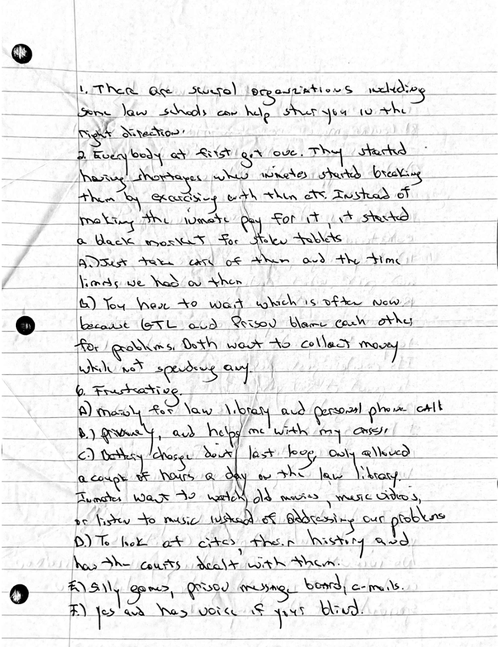 1. There are several organizations including
some law schools can help steer you in the
right direction.
2 Everybody at first got one. They started
having shortages when inmates started breaking
them by exercising with them etc. Instead of
making the inmate pay for it, it started
a black market for stolen tablets
A.) Just take care of them and the time
limits we had on them
B) You have to wait which is often now
because GTL and Prison blame each other
for problems. Both want to collect money
while not spending any.
6. Frustrating.
A) mainly for law library and personal phone call
B.) privately, and helps me with my cases.
C.) Battery charge don't last long, only allowed
a couple of hours a day on the law library.
Inmates want to watch old movies, music videos,
or listen to music instead of addressing our problems
D.) To look at cites, their history and
how the courts dealt with them.
E.) Silly games, prison message board, e-mails.
F.) yes and has voice if your blind.